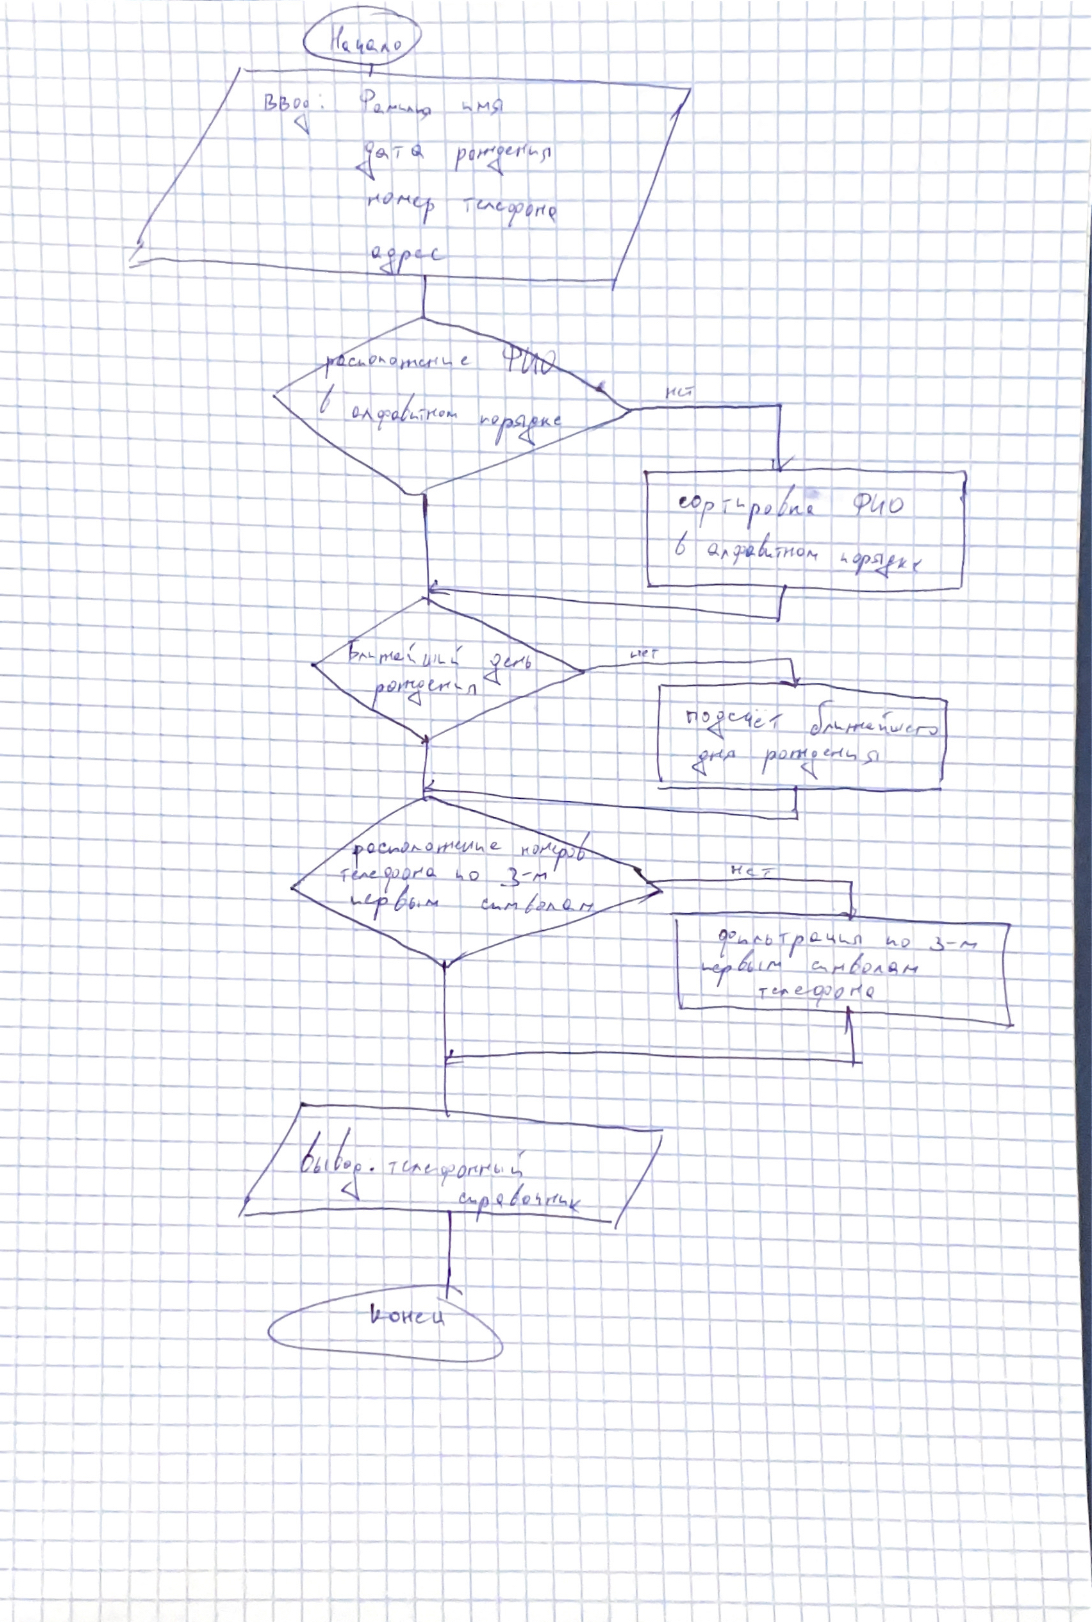 Начало
Ввод: Фамилия имя
дата рождения
номер телефона
адрес
расположение ФИО
в алфавитном порядке
нет
сортировка ФИО
в алфавитном порядке
Ближайший день
рождения
нет
подсчёт ближайшего
дня рождения
расположение номеров
телефона по 3-м
первым символам
нет
фильтрация по 3-м
первым символам
телефона
вывод. телефонный
справочник
Конец